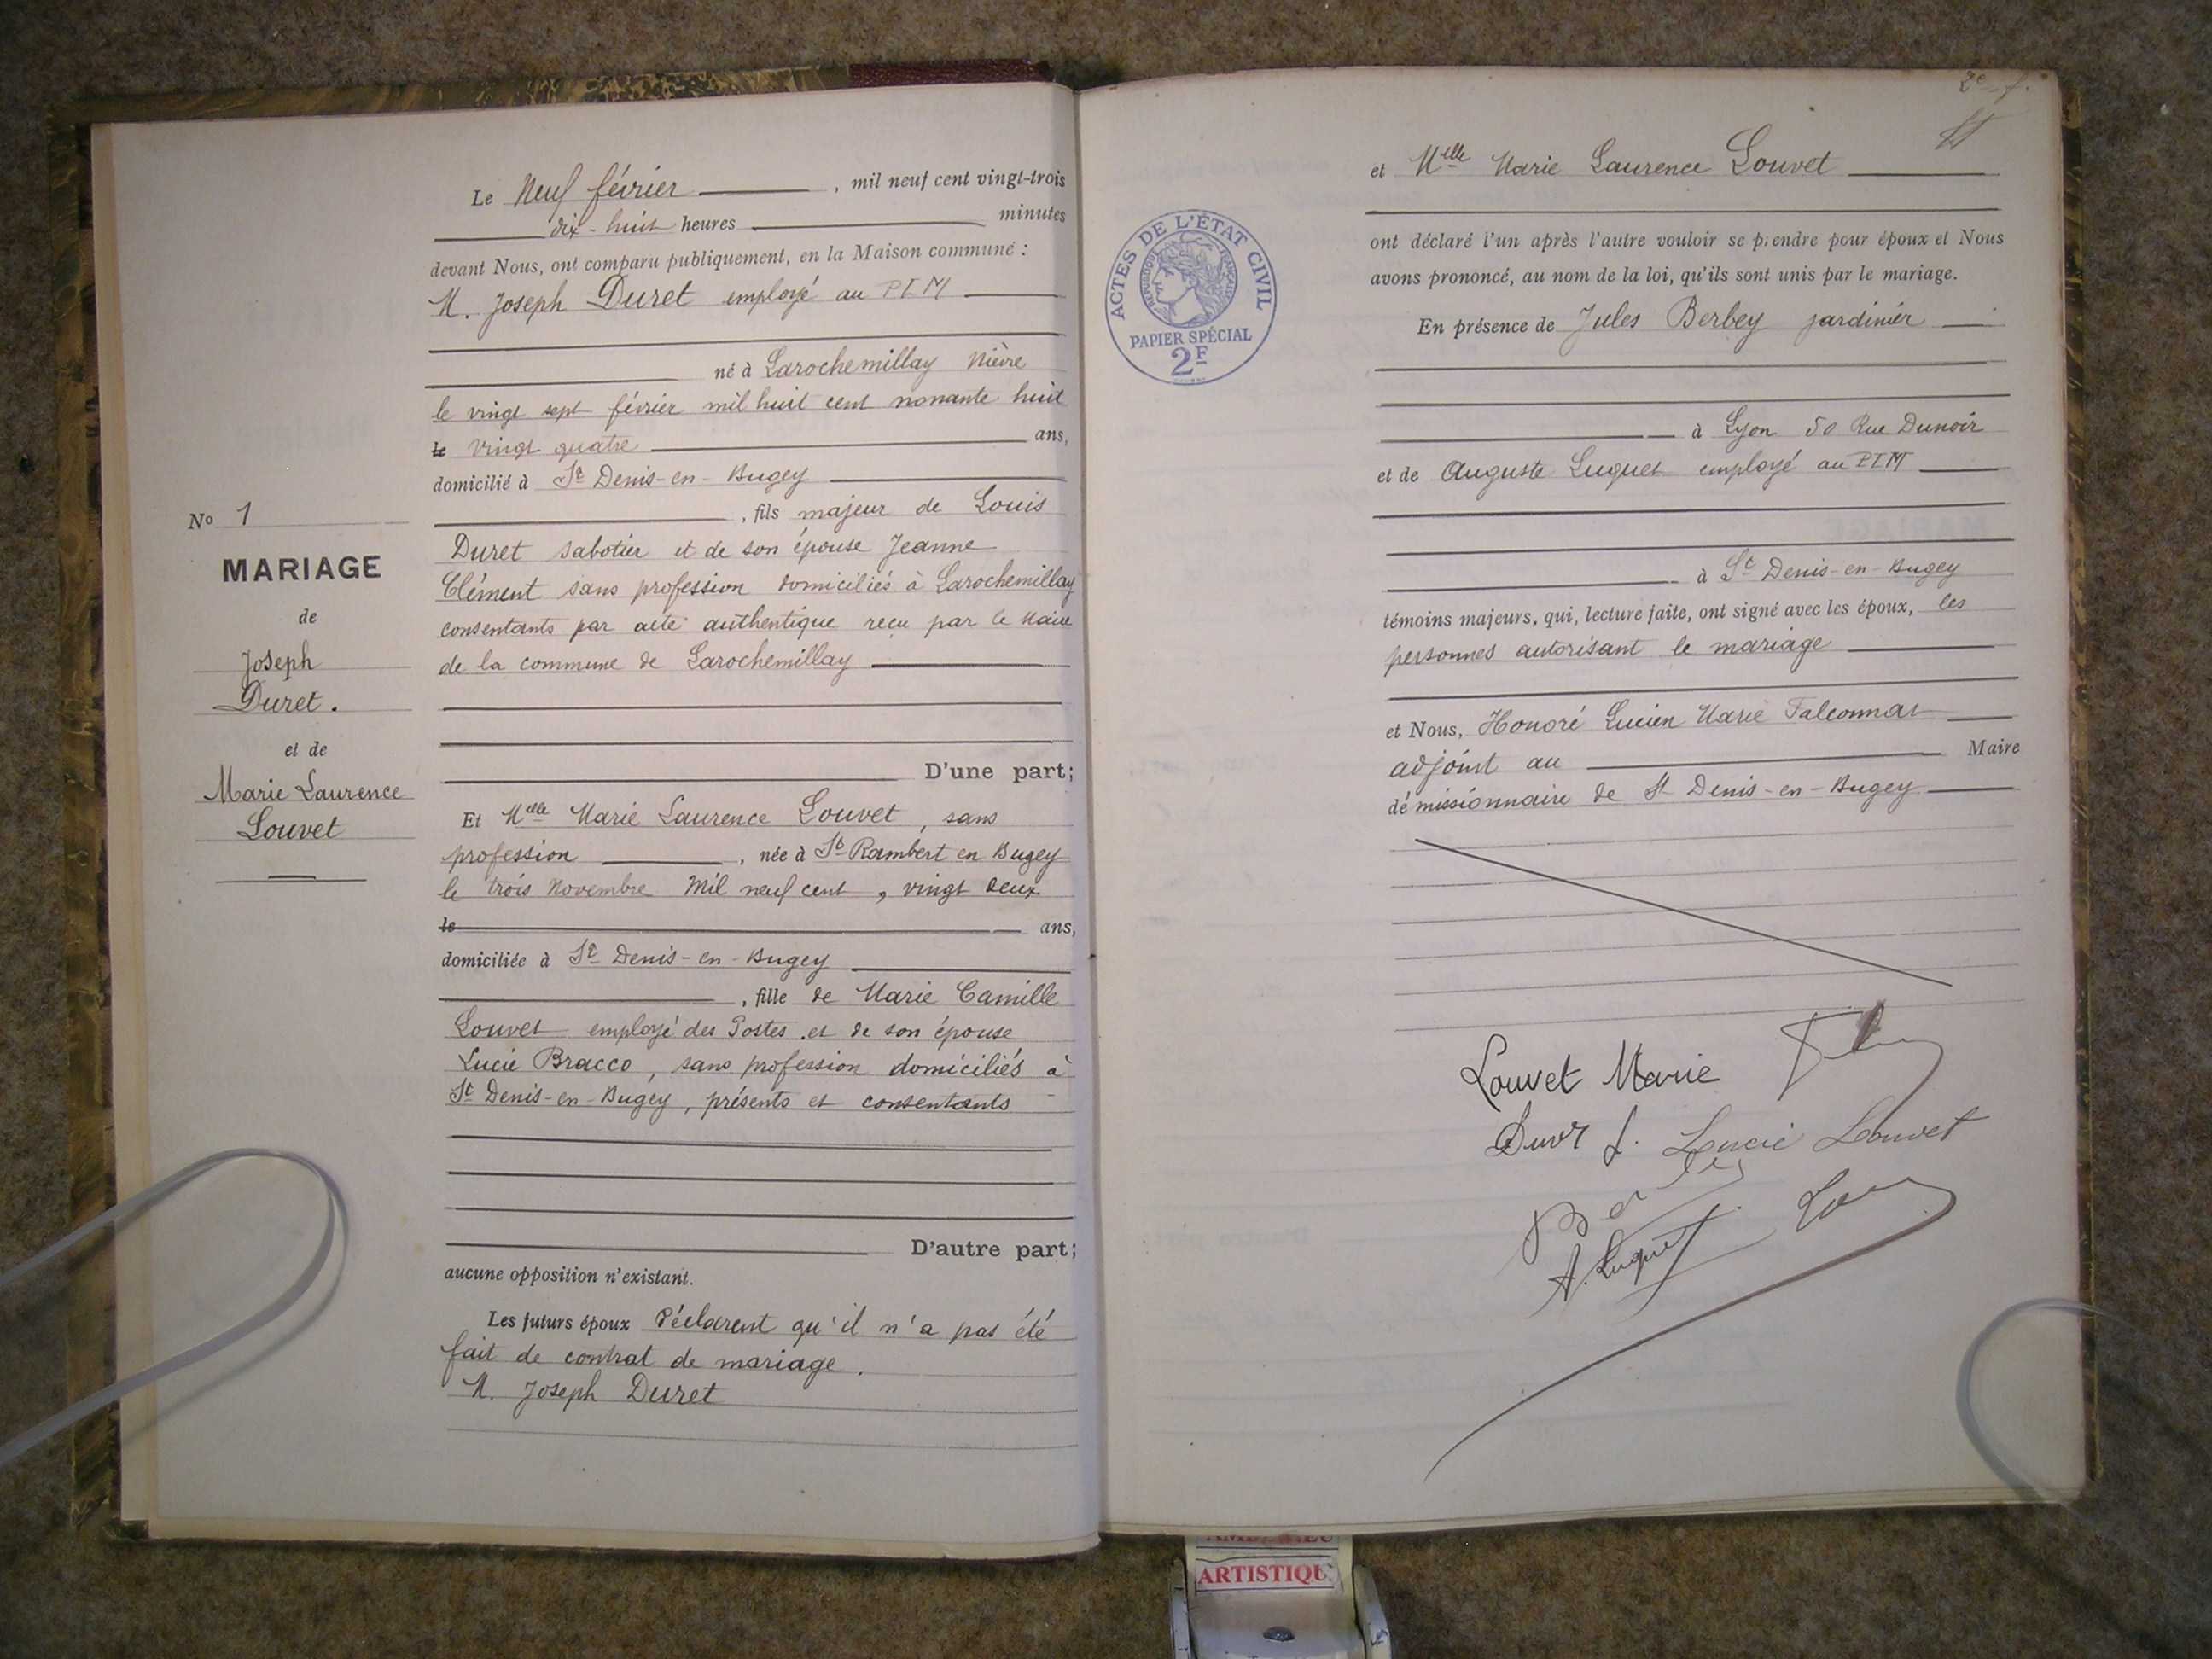 Le Neuf février , mil neuf cent vingt-trois
dix-huit heures minutes
devant Nous, ont comparu publiquement, en la Maison commune :
M. Joseph Duret employé au PLM
né à Larochemillay Nièvre
le vingt sept février mil huit cent nonante huit
le vingt quatre ans,
domicilié à St Denis-en-Bugey
, fils majeur de Louis
Duret sabotier et de son épouse Jeanne
Clément sans profession domiciliés à Larochemillay
consentants par acte authentique reçu par le Maire
de la commune de Larochemillay
D'une part;
Et Mlle Marie Laurence Louvet, sans
profession , née à St Rambert en Bugey
le trois Novembre Mil neuf cent, vingt deux
le ans,
domiciliée à St Denis-en-Bugey
, fille de Marie Camille
Louvet employé des Postes et de son épouse
Lucie Bracco, sans profession domiciliés à
St Denis-en-Bugey, présents et consentants
D'autre part;
aucune opposition n'existant.
Les futurs époux déclarent qu'il n'a pas été
fait de contrat de mariage.
M. Joseph Duret
No 1
MARIAGE
de
Joseph
Duret.
et de
Marie Laurence
Louvet
2e f.
et Mlle Marie Laurence Louvet
ont déclaré l'un après l'autre vouloir se prendre pour époux et Nous
avons prononcé, au nom de la loi, qu'ils sont unis par le mariage.
En présence de Jules Berbey jardinier
à Lyon 50 Rue Dunoir
et de Auguste Luquet employé au PLM
à St Denis-en-Bugey
témoins majeurs, qui, lecture faite, ont signé avec les époux, les
personnes autorisant le mariage
et Nous, Honoré Lucien Marie Falconnat
adjoint au Maire
démissionnaire de St Denis-en-Bugey
Louvet Marie
Duret J. Lucie Louvet
A. Luquet
ACTES DE L'ÉTAT CIVIL
RÉPUBLIQUE FRANÇAISE
PAPIER SPÉCIAL
2F
ARTISTIQUE